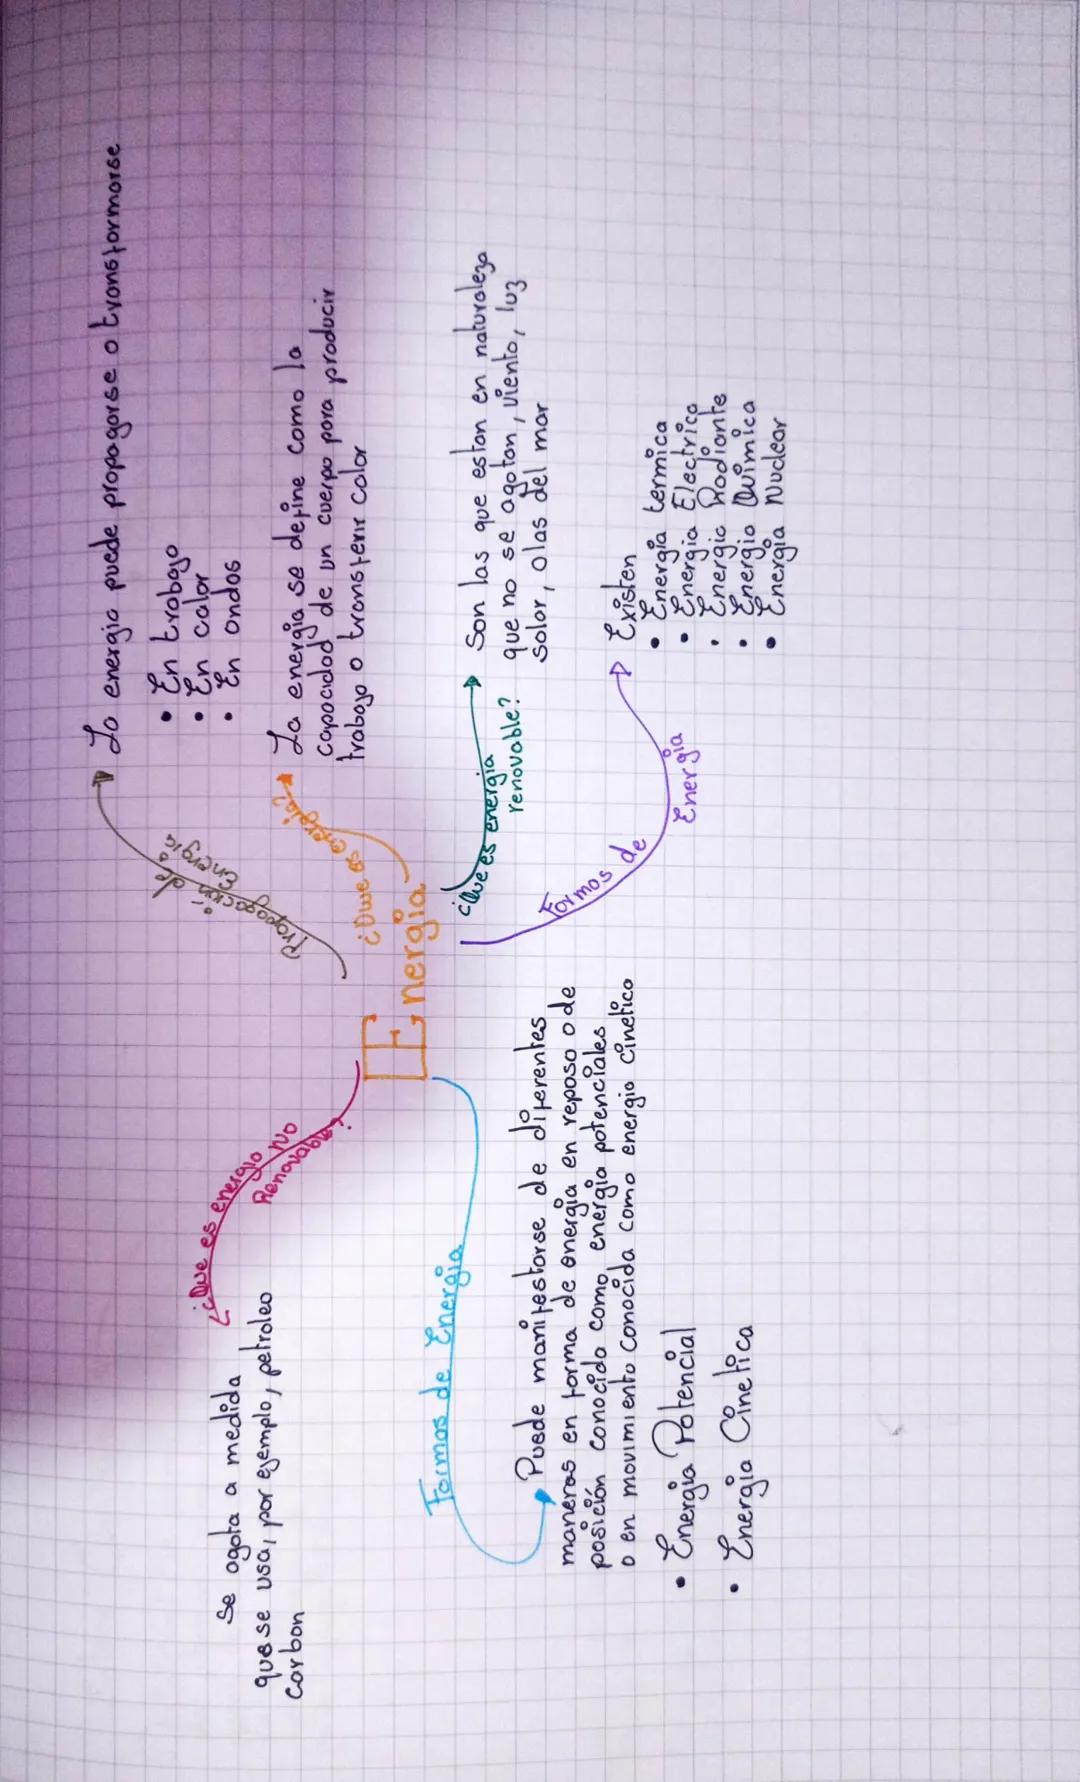 Energia
¿Que es energia?
La energia se define como la
capacidad de un cuerpo para producir
trabajo o transferir calor
Propagación de
Energia
La energia puede propagarse o transformarse
• En trabajo
• En calor
• En ondas
¿Que es energia
renovable?
Son las que estan en naturaleza
que no se agotan, viento, luz
solar, olas del mar
Formas de
Energia
Existen
• Energia termica
• Energia Electrica
• Energia Radiante
• Energia Quimica
• Energia Nuclear
¿Que es energia No
Renovable?
Se agota a medida
que se usa, por ejemplo, petroleo
Carbon
Formas de Energia
Puede manifestarse de diferentes
maneras en forma de energia en reposo o de
posición conocida como energia potenciales
o en movimiento conocida como energia cinetica
• Energia Potencial
• Energia Cinetica